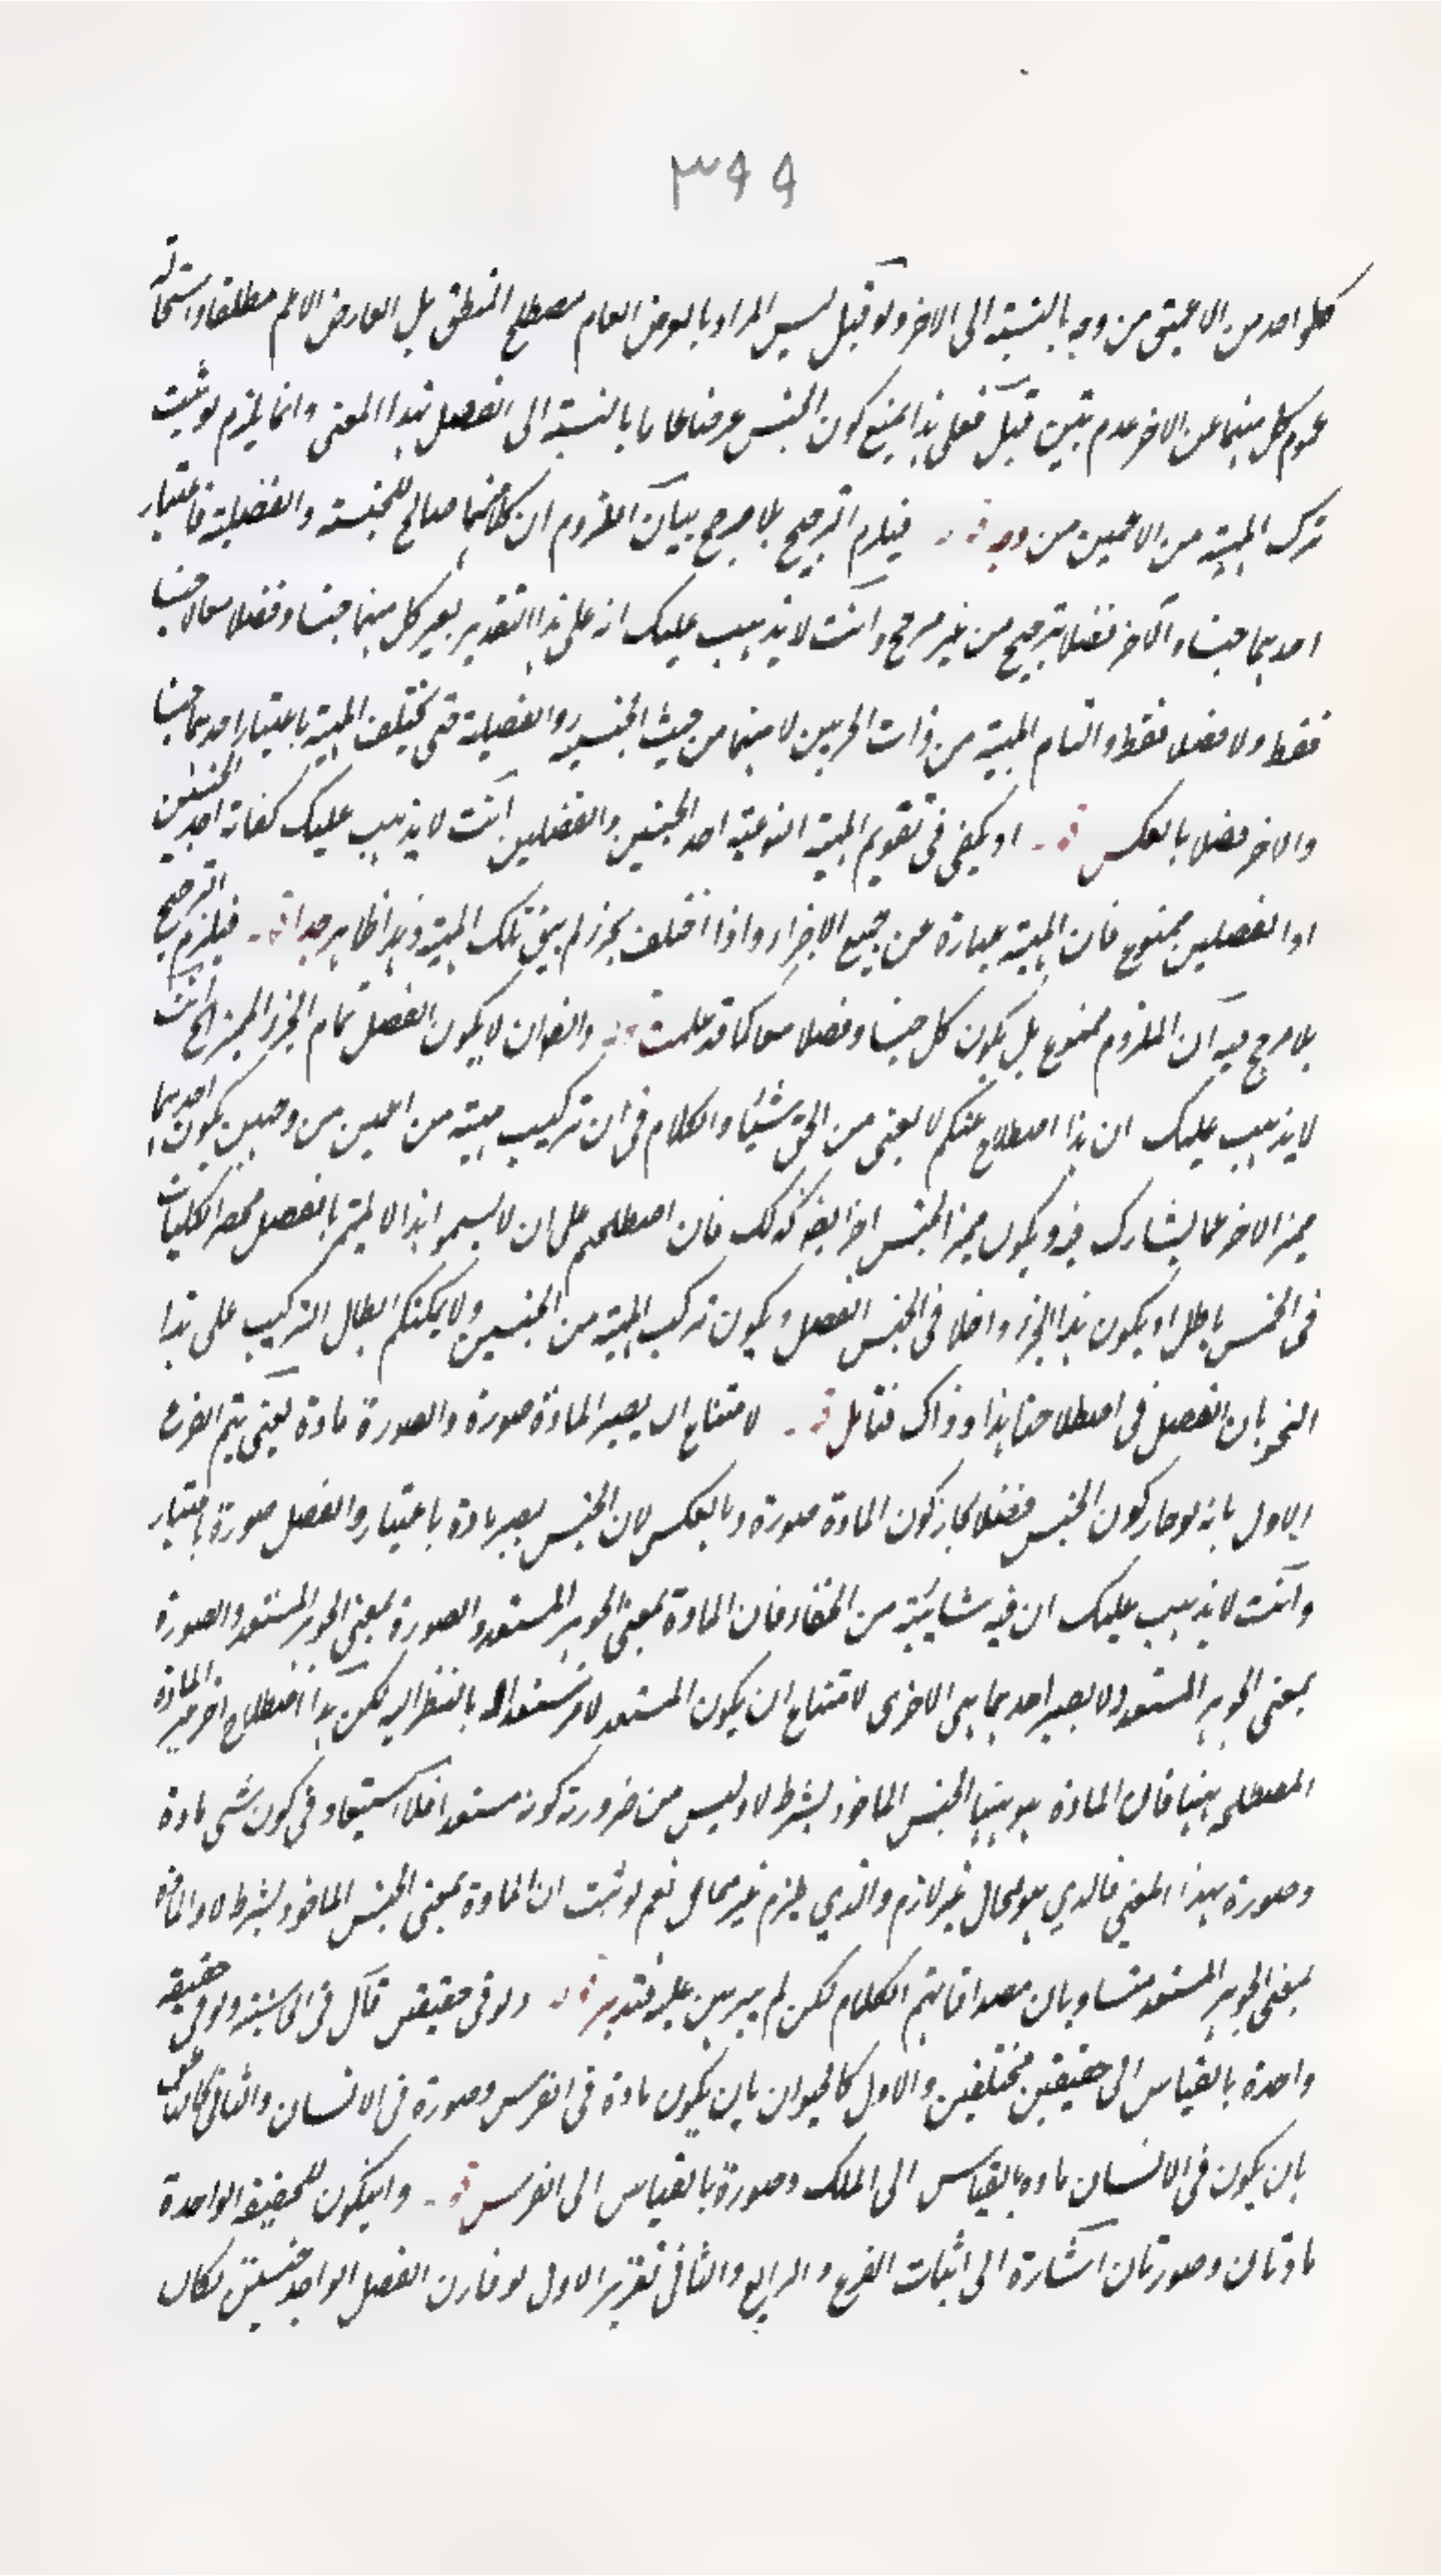 ٣٩٩
كل واحد من الاعمين من وجه بالنسبة الى الاخر ولو قيل ليس المراد بالعرض العام مصطلح المنطق بل العارض الاعم مطلقا واستحالة
عموم كل منهما عن الاخر عدم بتين قيل فعلى هذا يمنع كون الجنس عرضا عاما بالنسبة الى الفصل بهذا المعنى وانما يلزم لو ثبت
تركب المهية من الاعمين من وجه قوله فيلزم الترجيح بلا مرجح بيان الملزوم ان كلا منهما صالح للجنسية والفصلية فاعتبار
احدهما جنسا والآخر فصلا ترجيح من غير مرجح وانت لا يذهب عليك انه على هذا التقدير يصير كل منهما جنسا وفصلا معا لا جنسا
فقط ولا فصلا فقط والتيام المهية من ذات الجزئين لا منهما من حيث الجنسية والفصلية حتى يختلف المهية باعتبار احدهما جنسا
والاخر فصلا بالعكس قوله او يكفى فى تقويم المهية النوعية احد الجنسين والفصلين انت لا يذهب عليك كفاية احد الجنسين
او الفصلين ممنوع فان المهية عبارة عن جميع الاجزاء واذا اختلف بجزء لم يبق تلك المهية وهذا ظاهر جدا قوله فيلزم الترجيح
بلا مرجح فيه ان الملزوم ممنوع بل يكون كل جنسا وفصلا معا كما قد علمت قوله والقول ان لا يكون الفصل تمام الجزء المميز الخ انت
لا يذهب عليك ان هذا اصطلاح منكم لا يغنى من الحق شيئا والكلام فى ان تركيب مهية من اعمين من وجهين يكون احدهما
يميز الاخر عما يشارك فيه ويكون مميز الجنس اخر ايضا كذلك فان اصطلحتم على ان لا يسموا هذا لا يتم بالفصل حصر الكليات
فى الخمس باطل او يكون هذا الجزء داخلا فى الجنس الفصل ويكون تركب المهية من الجنسين ولا يمكنكم ابطال التركيب على هذا
النحو بان الفصل فى اصطلاحنا هذا وذاك فتامل قوله لامتناع ان يصير المادة صورة والصورة مادة يعنى يتم الفرع
الاول بانه لو جاز كون الجنس فصلا لجاز كون المادة صورة وبالعكس لان الجنس يصير مادة باعتبار والفصل صورة باعتبار
وانت لا يذهب عليك ان فيه شائبة من الخفاء فان المادة بمعنى الجوهر المستعد والصورة بمعنى الجوهر المستعد والصورة
بمعنى الجوهر المستعد ولا يصير احدهما هى الاخرى لامتناع ان يكون المستعد لامر مستعدا له بالنظر اليه لكن هذا اصطلاح اخر غير المادة
المصطلحة ههنا فان المادة هو ههنا الجنس الماخوذ بشرط لا وليس من ضرورته كونه مستعدا فلا استبعاد فى كون شى مادة
وصورة بهذا المعنى فالذي هو محال غير لازم والذي يلزم غير محال نعم لو ثبت ان المادة بمعنى الجنس الماخوذ بشرط لا والمادة
بمعنى الجوهر المستعد متساويان مصداقا يتم الكلام لكن لم يبرهن عليه فتدبر قوله ولو فى حقيقتين قال فى الحاشية ولو فى حقيقة
واحدة بالقياس الى حقيقتين مختلفين والاول كالحيوان بان يكون مادة فى الفرس وصورة فى الانسان والثانى كالناطق
بان يكون فى الانسان مادة بالقياس الى الملك وصورة بالقياس الى الفرس قوله وان يكون للحقيقة الواحدة
مادتان وصورتان اشارة الى اثبات الفرع والرابع والثانى تقرير الاول لو قارن الفصل الواحد جنسين لكان